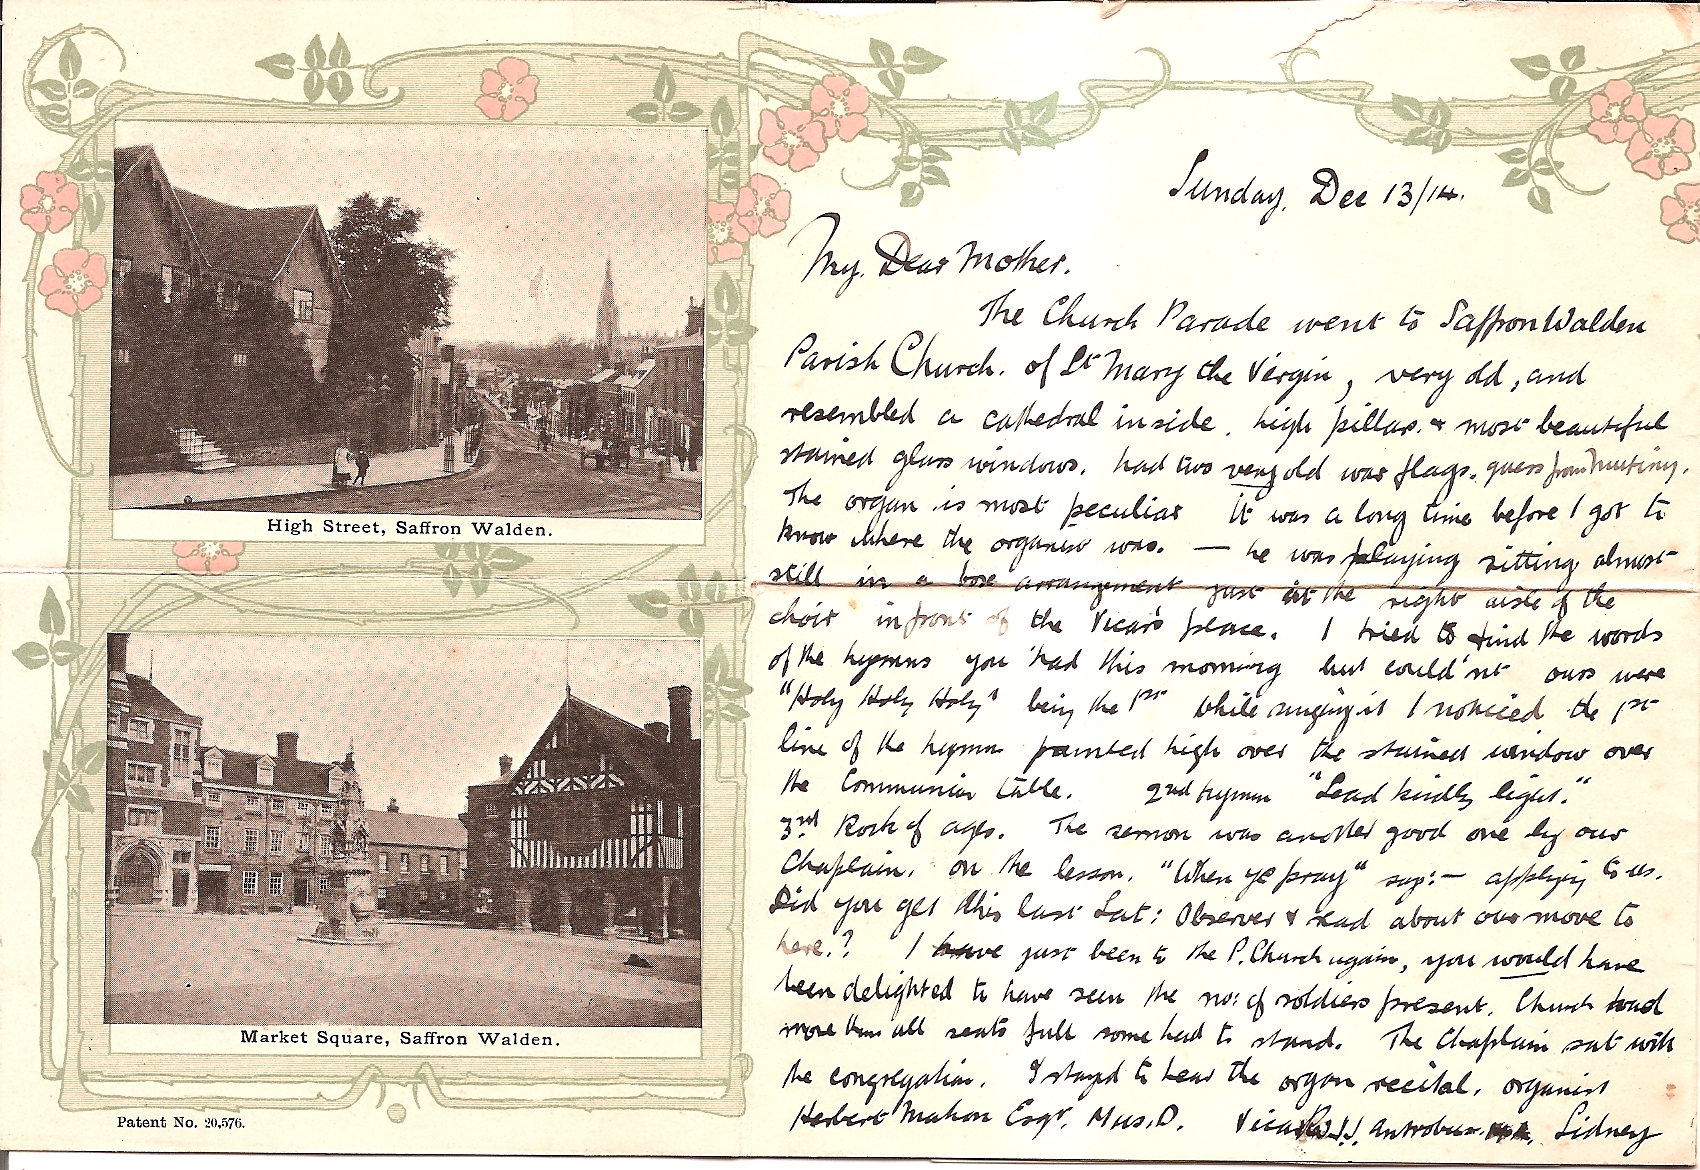 High Street, Saffron Walden.
Market Square, Saffron Walden.
Patent No. 20,576.
Sunday, Dec 13/14.
My Dear Mother.
The Church Parade went to Saffron Walden
Parish Church. of St Mary the Virgin, very old, and
resembled a cathedral inside, high pillars. & most beautiful
stained glass windows. had two very old war flags. guess from Mutiny.
The organ is most peculiar It was a long time before I got to
know where the organist was. — he was playing sitting almost
still in a box arrangement just at the right aisle of the
choir in front of the Vicar's place. I tried to find the words
of the hymns you had this morning but could'nt ours were
"Holy Holy Holy" being the 1st While singing it I noticed the 1st
line of the hymn painted high over the stained window over
the Communion table. 2nd hymn "Lead kindly light."
3rd Rock of ages. The sermon was another good one by our
Chaplain. on the lesson. "When ye pray" say:— applying to us.
Did you get this last Sat: Observer & read about our move to
here.? I have just been to the P. Church again, you would have
been delighted to have seen the no: of soldiers present. Church
more than all seats full some had to stand. The Chaplain sat with
the congregation. I stayed to hear the organ recital. organist
Herbert Mahon Esqr. Mus. D. Vicar Antrobus Sidney